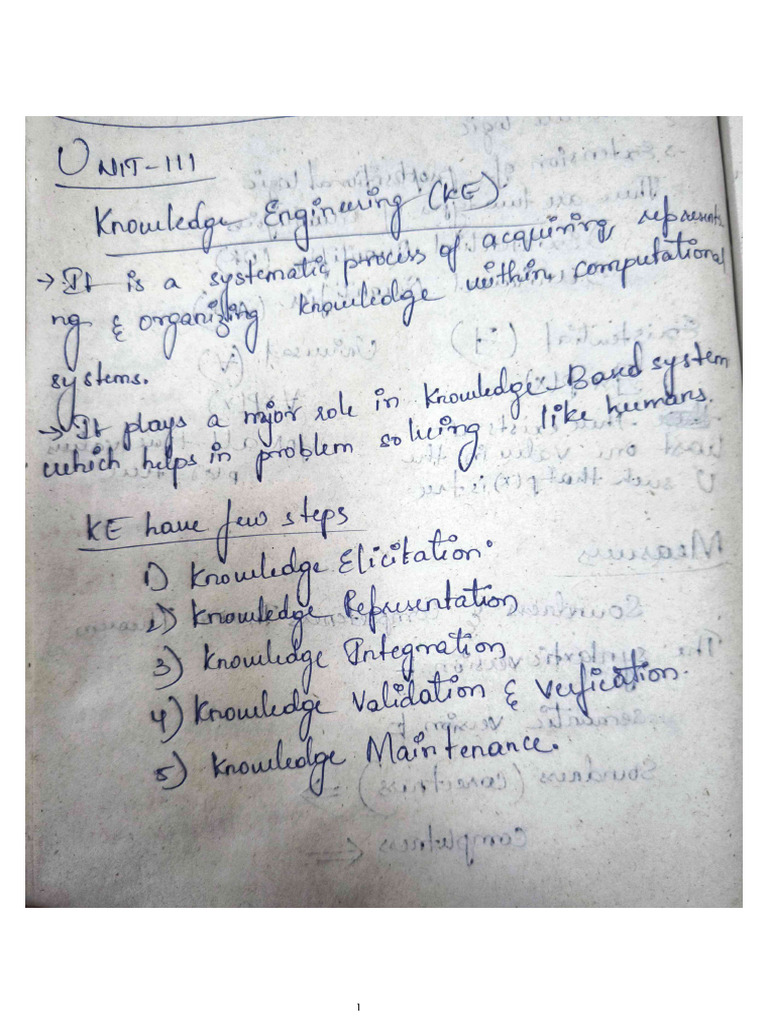 UNIT-III
Knowledge Engineering (KE)
→ It is a systematic process of acquiring representi
ng & organizing knowledge within computational
systems.
→ It plays a major role in knowledge-Based system
which helps in problem solving like humans.
KE have few steps
1) Knowledge Elicitation.
2) Knowledge Representation
3) Knowledge Integration
4) Knowledge Validation & Verification.
5) Knowledge Maintenance.
1